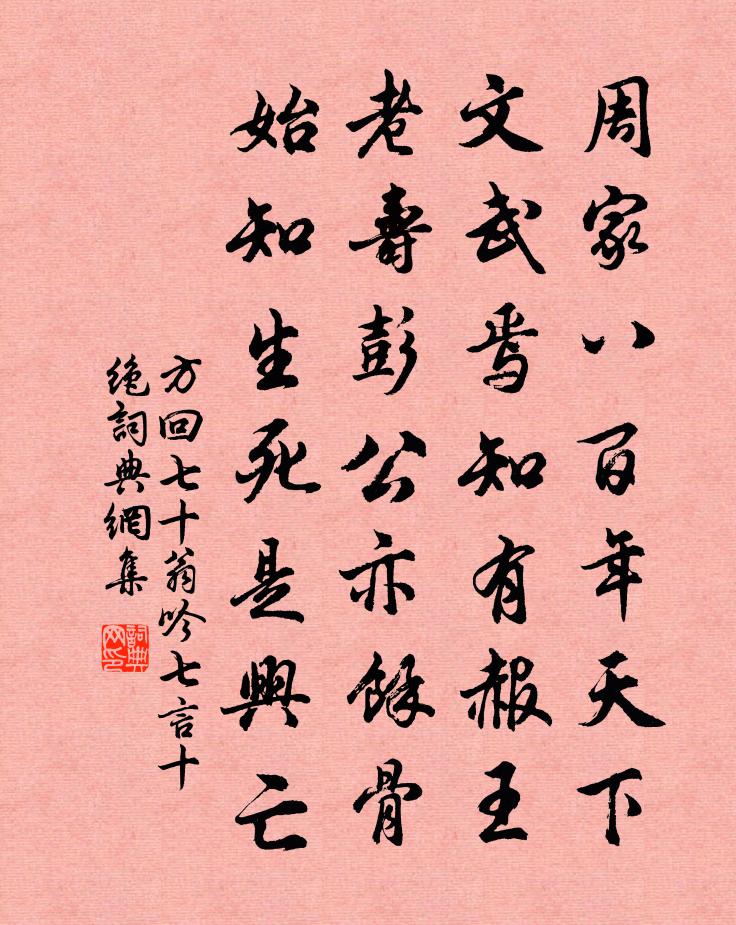 周家八百年天下
文武焉知有赧王
老壽彭公亦餘骨
始知生死是興亡
方回七十翁吟七言十
絶詞典網集
詞典
网印